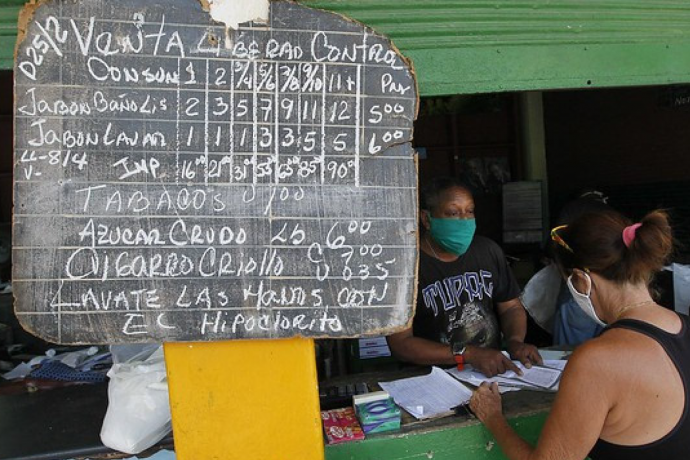 D25/2 Venta Liberad Control
Consum 1 2 3/4 5/6 7/8 9/10 11+ Pre
Jabon Baño Lis 2 3 5 7 9 11 12 5.00
Jabon Lavar 1 1 1 3 3 5 5 6.00
4-8/4
V- Imp 16.00 21.00 31.00 53.00 63.00 85.00 90.00
Tabacos 1.00
Azucar Crudo Lb 6.00
Cigarro Criollo C 7.00
U 0.35
Lavate las manos con
el Hipoclorito
TUPAC